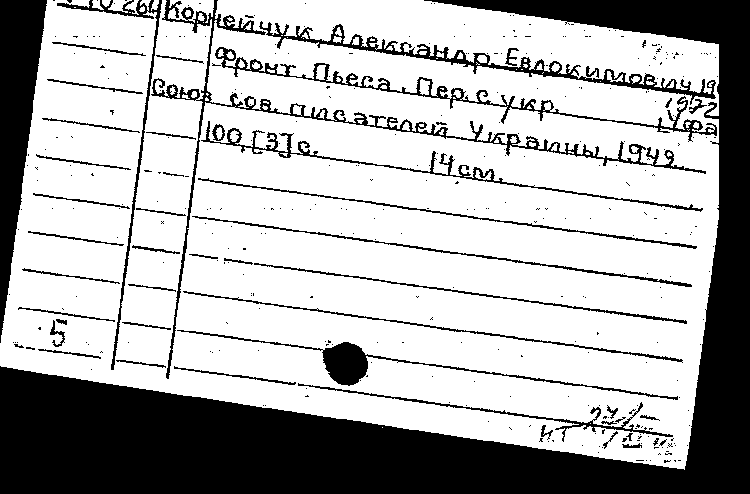 Корнейчук, Александр Евдокимович, 19
1972
Фронт. Пьеса. Пер. с укр. Уфа
Союз сов. писателей Украины, 1942.
100, [3] с. 14 см.
5